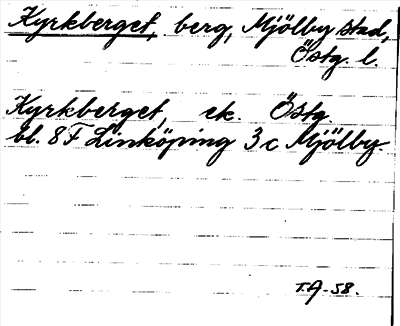 Kyrkberget, berg, Mjölby stad,
Östg. l.
Kyrkberget, ek. Östg.
bl. 8F Linköping 3c Mjölby.
T.A-58.